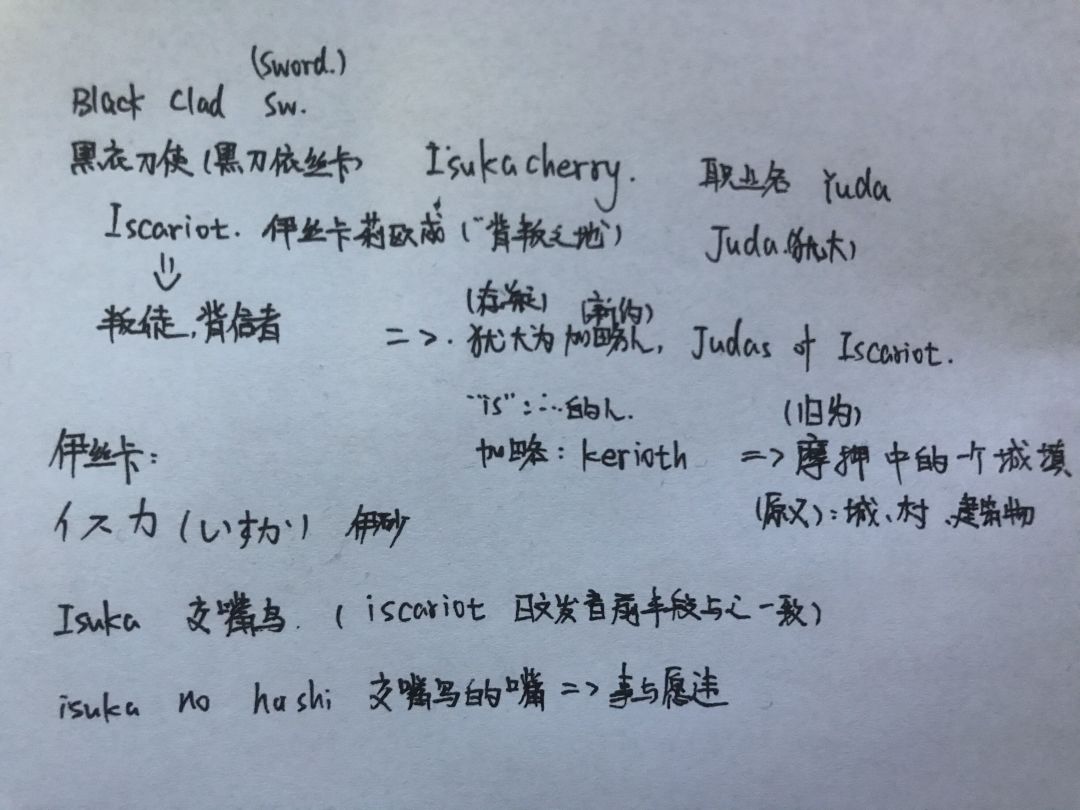 (sword.)
Black Clad Sw.
黑衣刀使(黑刀依丝卡) Isuka cherry. 职业名 yuda
Iscariot. 伊丝卡莉欧 ("背叛之地") Juda.(犹大)
叛徒,背信者
(新约)
=>. 犹大为加略人, Judas of Iscariot.
"is":…的人. (旧约)
伊丝卡:
加略: kerioth => 摩押中的一个城镇
イスカ(いすか) 伊砂 (原义):城、村、建筑物
Isuka 交嘴鸟. (iscariot 日文发音前半段与之一致)
isuka no hashi 交嘴鸟的嘴 => 事与愿违